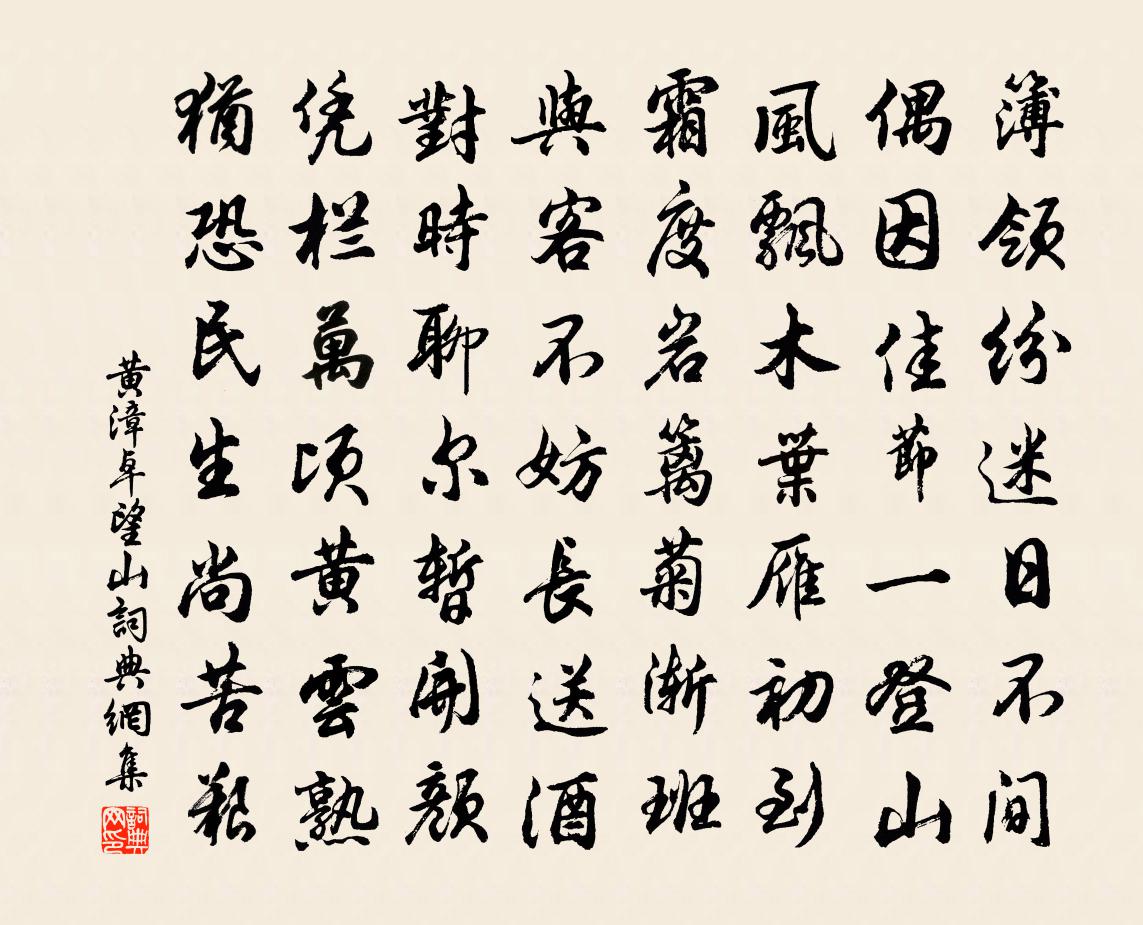 簿領紛迷日不間
偶因佳節一登山
風飄木葉雁初到
霜度岩籬菊漸班
與客不妨長送酒
對時聊尔暫開顏
凭栏萬頃黃雲熟
猶恐民生尚苦艱
黃漳卓望山詞典網集
詞典网印